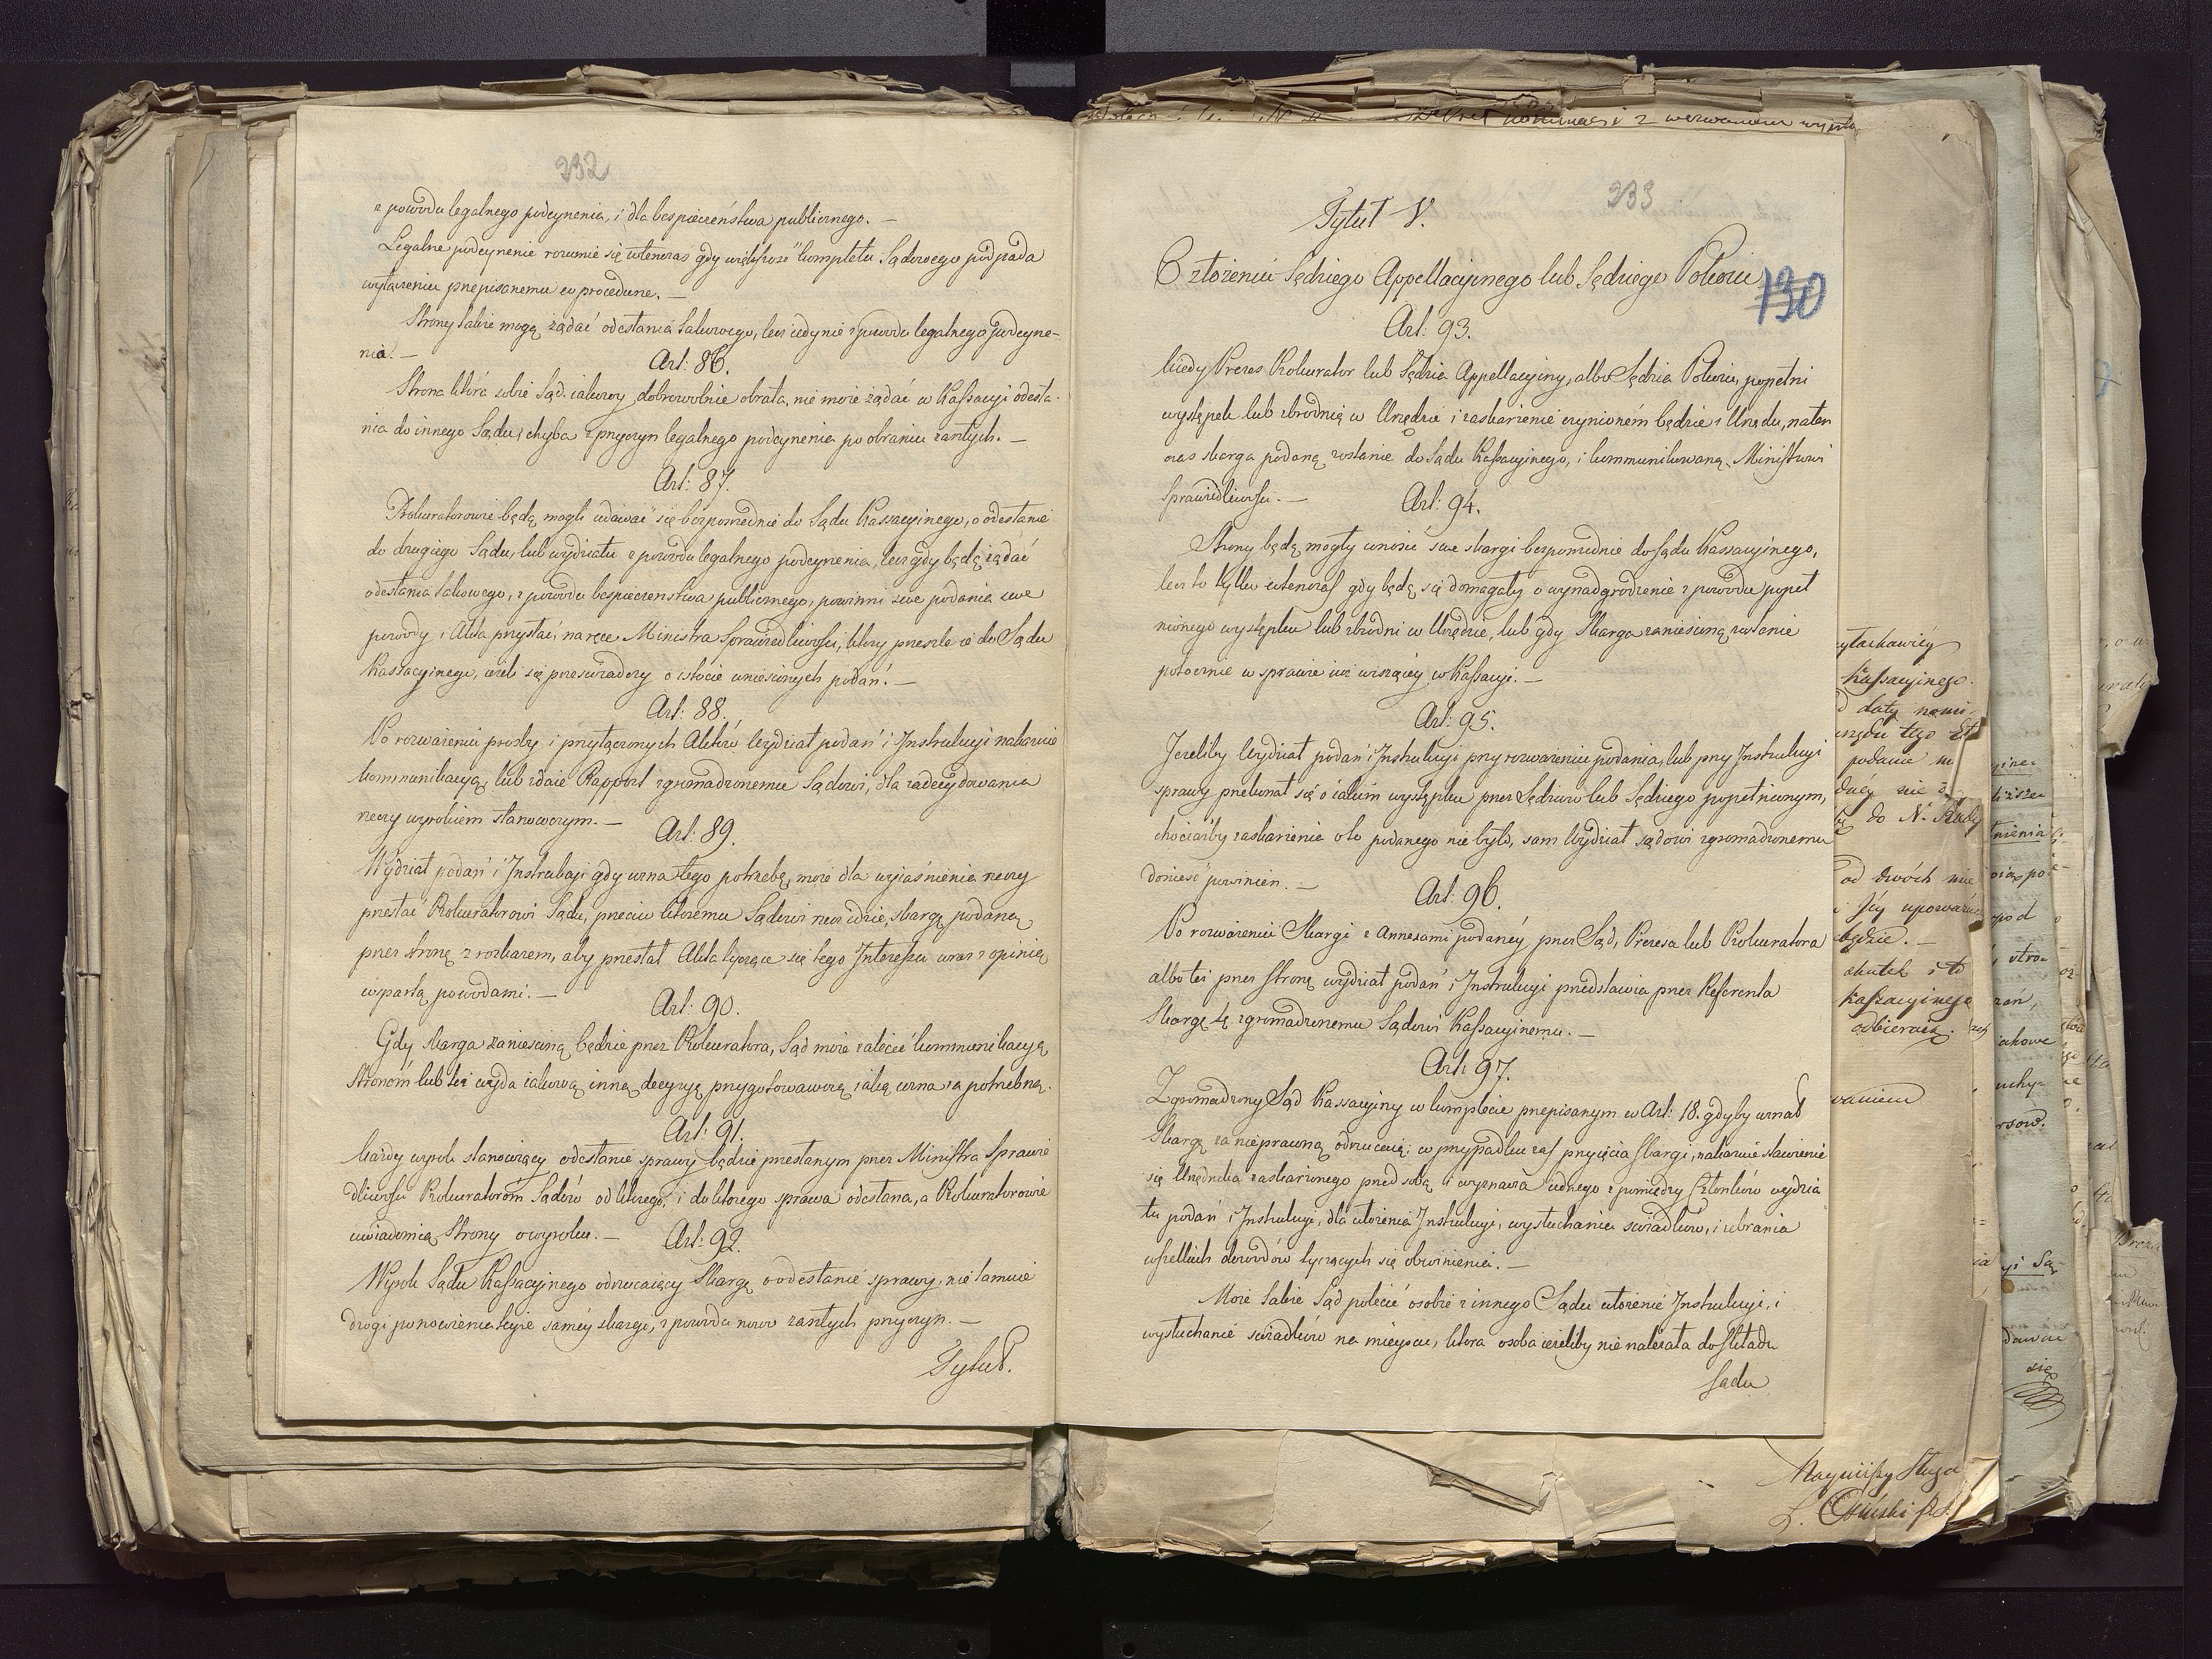 232
z powodu legalnego podeyrzenia, i dla bespieczeństwa publicznego. —
Legalne podeyrzenie rozumie się wtenczas gdy większość kompletu Sądowego podpada
wyłączeniu przepisanemu w procedurze. —
Strony także mogą żądać odesłania takowego, lecz iedynie z powodu legalnego podeyrze-
nia. —
Art: 86.
Strona która sobie Sąd iakowy dobrowolnie obrała, nie może żądać w Kassacyi odesła-
nia do innego Sądu, chyba z przyczyn legalnego podeyrzenia po obraniu zaszłych. —
Art: 87.
Prokuratorowie będą mogli udawać się bezpośrednie do Sądu Kassacyinego, o odesłanie
do drugiego Sądu, lub wydziału z powodu legalnego podeyrzenia, lecz gdy będą żądać
odesłania takowego, z powodu bespieczenstwa publicznego, powinni swe podania swe
powody i Akta przysłać, na ręce Ministra Sprawiedliwości, który prześle ie do Sądu
Kassacyinego, ieżeli się przeświadczy o istocie wniesionych podań. —
Art: 88.
Po rozważeniu prośby i przyłączonych Aktów Wydział podań i Instrukcyi nakazuie
kommunikacyą, lub zdaie Rapport zgromadzonemu Sądowi, dla zadecydowania
rzeczy wyrokiem stanowczym. —
Art: 89.
Wydział podań i Instrukcyi gdy uzna tego potrzebę, może dla wyiaśnienia rzeczy
przesłać Prokuratorowi Sądu, przeciw któremu Sądowi rzecz idzie, skargę podaną
przez stronę z rozkazem, aby przesłał Akta tyczące się tego Interessu wraz z opinią
wspartą powodami. —
Art: 90.
Gdy skarga zaniesioną będzie przez Prokuratora, Sąd może zalecić kommunikacyą
Stronóm lub też wyda iakową inną decyzyą przygotowawczą iaką uzna za potrzebną.
Art: 91.
Każdy wyrok stanowiący odesłanie sprawy będzie przesłanym przez Ministra Sprawie
dliwości Prokuratorom Sądów od którego, i do którego sprawa odesłana, a Prokuratorowie
uwiadomią Strony o wyroku. —
Art: 92.
Wyrok Sądu Kassacyinego odrzucaiący Skargę o odesłanie sprawy, nie tamuie
drogi ponowienia teyże saméy skargi, z powodu nowo zaszłych przyczyn. —
Tytuł.
233
Tytuł V.
O złożeniu Sędziego Appellacyinego lub Sędziego Pokoiu
130
Art: 93.
Kiedy Prezes Prokurator lub Sędzia Appellacyiny, albo Sędzia Pokoiu, popełni
występek lub zbrodnią w Urzędzie i zaskarżenie czynioném będzie z Urzędu, naten
czas skarga podaną zostanie do Sądu Kassacyinego, i kommunikowaną Ministrowi
Sprawiedliwości. —
Art: 94.
Strony będą mogły wnosić swe skargi bezpośrednie do Sądu Kassacyinego,
lecz to tylko wtenczas gdy będą się domagały o wynadgrodzenie z powodu popeł
nionego występku lub zbrodni w Urzędzie, lub gdy Skarga zaniesioną zostanie
potocznie w sprawie iuż wiszącéy w Kassacyi. —
Art: 95.
Jeżeliby Wydział podań i Instrukcyi przy rozważeniu podania, lub przy Instrukcyi
sprawy przekonał się o iakim występku przez Sędziów lub Sędziego popełnionym,
chociażby zaskarżenie o to podanego nie było, sam Wydział sądowi zgromadzonemu
donieść powinien. —
Art: 96.
Po rozważeniu Skargi z Annexami podanéy przez Sąd, Prezesa lub Prokuratora
albo też przez Stronę wydział podań i Instrukcyi przedstawia przez Referenta
Skargę tę zgromadzonemu Sądowi Kassacyinemu. —
Art: 97.
Zgromadzony Sąd Kassacyiny w komplecie przepisanym w Art: 18. gdyby uznał
Skargę za nieprawną odrzucają; w przypadku zaś przyięcia Skargi, nakazuie stawienie
się Urzędnika zaskarżonego przed sobą i wyznacza iednego z pomiędzy Członków wydzia
łu podań i Instrukcyi, dla ułożenia Instrukcyi, wysłuchania swiadków, i zebrania
wszelkich dowodów tyczących się obwinienia. —
Może także Sąd polecić osobie z innego Sądu ułożenie Instrukcyi, i
wysłuchanie swiadków na mieyscu, która osoba ieżeliby nie należała do składu
Sądu
Kassacyinego.
podanie
od dwóch
będzie. —
skutek i to
Kassacyinego
odbieraią.
Naynizszy Sługa
L. Osiński